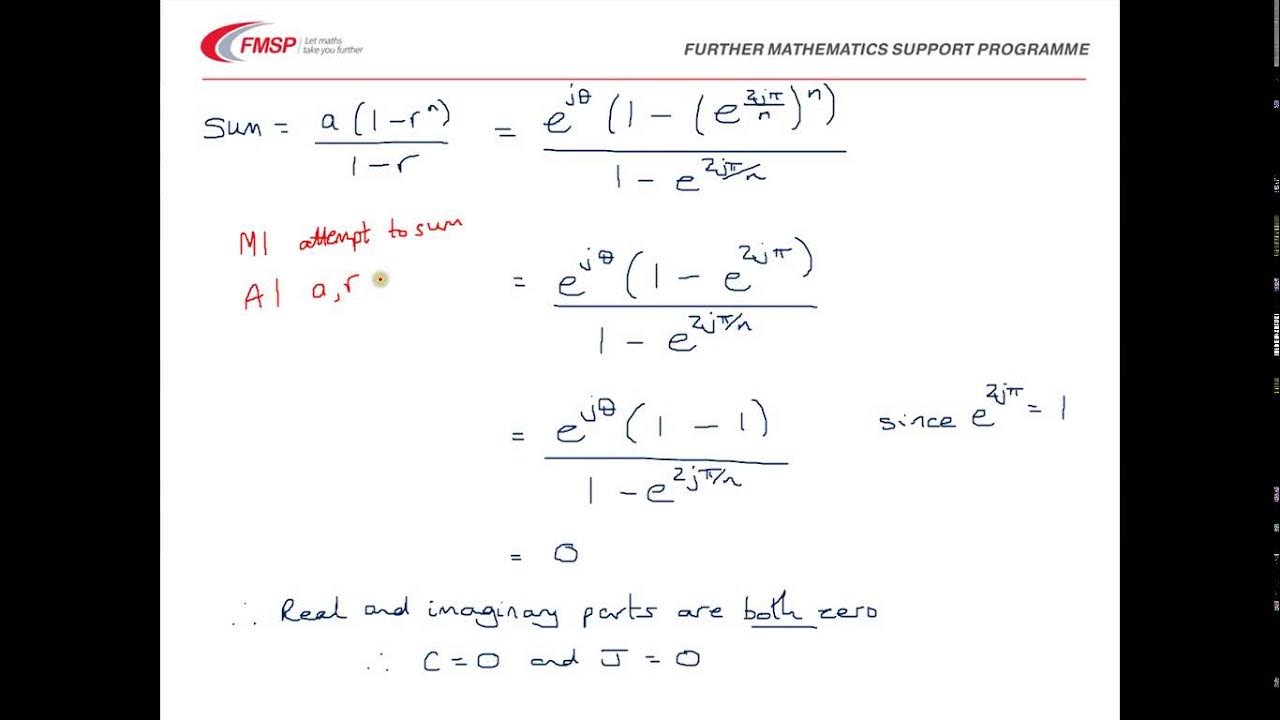 FMSP Let maths
take you further
FURTHER MATHEMATICS SUPPORT PROGRAMME
Sum = a(1-rⁿ)/(1-r) = e^(jθ)(1 - (e^(2jπ/n))ⁿ)/(1 - e^(2jπ/n))
M1 attempt to sum
A1 a,r = e^(jθ)(1 - e^(2jπ))/(1 - e^(2jπ/n))
= e^(jθ)(1 - 1)/(1 - e^(2jπ/n)) since e^(2jπ) = 1
= 0
∴ Real and imaginary parts are both zero
∴ C = 0 and J = 0